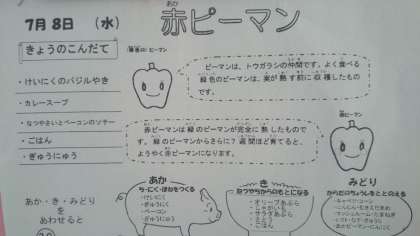 7月8日 (水)
あか
赤ピーマン
きょうのこんだて
・けいにくのバジルやき
・カレースープ
・なつやさいとベーコンのソテー
・ごはん
・ぎゅうにゅう
ピーマンは、トウガラシの仲間です。よく食べる
緑色のピーマンは、実が熟す前に収穫したもの
です。
赤ピーマンは緑のピーマンが完全に熟したもので
す。緑のピーマンからさらに7週間ほど育てると、
ようやく赤ピーマンになります。
赤ピーマン
あか・き・みどり
を
あわせると
あか
ち・にく・ほねをつくる
・けいにく
・ぎゅうにく
・ベーコン
・ぎゅうにゅう
き
ねつやちからのもとになる
・オリーブあぶら
・じゃがいも
・サラダあぶら
・ごはん
みどり
からだのちょうしをととのえる
・キャベツ・コーン
・にんじん・むきえだまめ
・マッシュルーム・たまねぎ
・赤ピーマン・にんにく